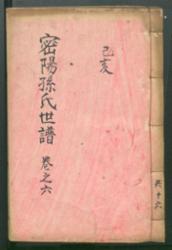 己亥
密陽孫氏世譜
卷之六
共十六